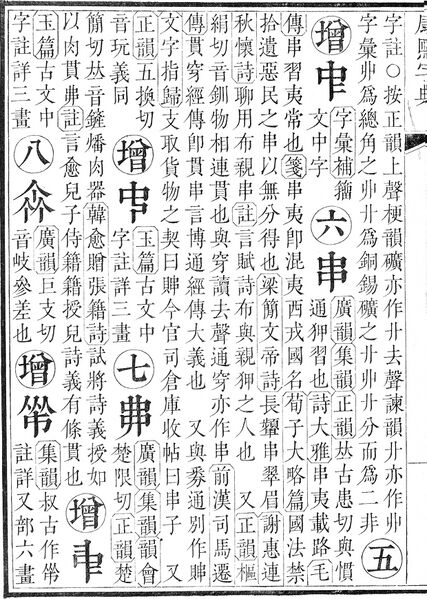 字註○按正韻上聲梗韻礦亦作丱去聲諫韻卝亦作丱
字彙丱爲總角之丱卝爲銅錫礦之卝丱卝分而爲二非 五
增
字彙補籀
文中字
六 串
廣韻集韻正韻𠀤古患切與慣
通狎習也詩大雅串夷載路毛
傳串習夷常也箋串夷即混夷西戎國名荀子大略篇國法禁
拾遺惡民之串以無分得也梁簡文帝詩長顰串翠眉謝惠連
秋懷詩聊用布親串註言賦詩布與親狎之人也 又正韻樞
絹切音釧物相連貫也與穿讀去聲通穿亦作串前漢司馬遷
傳貫穿經傳卽貫串言博通經傳大義也 又與𢍏通別作賗
文字指歸支取貨物之契曰賗今官司倉庫收帖曰串子 又
正韻五換切
音玩義同
增
玉篇古文中
字註詳三畫
七 丳
廣韻集韻韻會
楚限切正韻楚
簡切𠀤音鏟燔肉器韓愈贈張籍詩試將詩義授如
以肉貫丳註言愈兒子侍籍籍授兒詩義有條貫也 增
玉篇古文中
字註詳三畫
八
廣韻巨支切
音岐參差也
增
集韻叔古作
註詳又部六畫